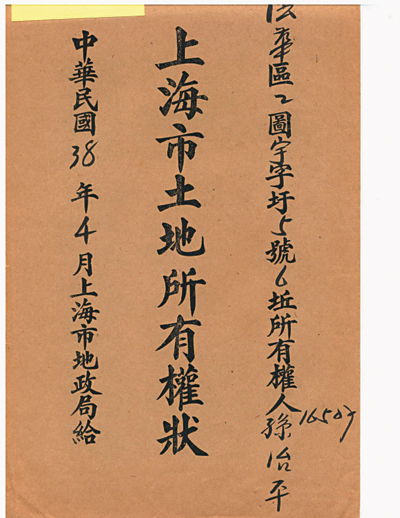 法華區2圖宇字圩5號6坵所有權人孫治平
上海市土地所有權狀
中華民國38年4月上海市地政局給